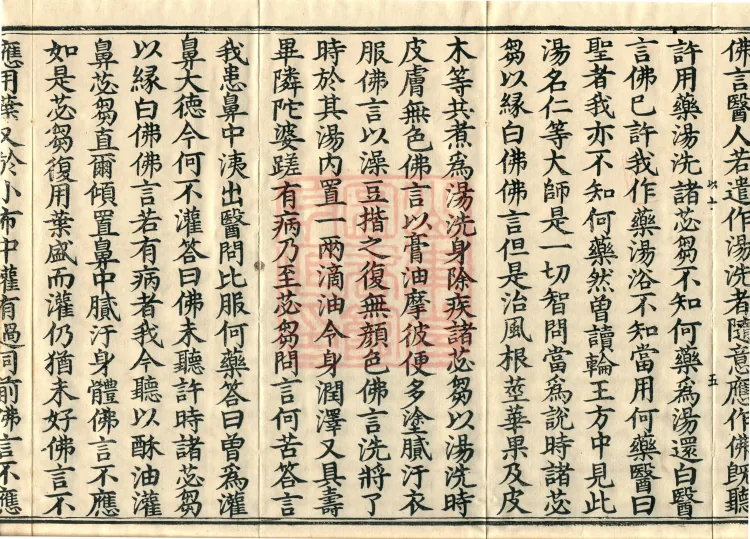 佛言醫人若遣作湯洗者隨意應作佛旣聽
許用藥湯洗諸苾芻不知何藥爲湯還白醫
言佛已許我作藥湯浴不知當用何藥醫曰
聖者我亦不知何藥然曾讀輪王方中見此
湯名仁等大師是一切智問當爲說時諸苾
芻以緣白佛佛言但是治風根莖華果及皮
木等共煮爲湯洗身除疾諸苾芻以湯洗時
皮膚無色佛言以膏油摩彼便多塗膩汙衣
服佛言以澡豆揩之復無顏色佛言洗將了
時於其湯內置一兩滴油令身潤澤又具壽
畢隣陀婆蹉有病乃至苾芻問言何苦答言
我患鼻中洟出醫問比服何藥答曰曾爲灌
鼻大德今何不灌答曰佛未聽許時諸苾芻
以緣白佛佛言若有病者我今聽以酥油灌
鼻苾芻直爾傾置鼻中膩汙身體佛言不應
如是苾芻復用葉盛而灌仍猶未好佛言不
應用葉又於小布中灌有過同前佛言不應
五